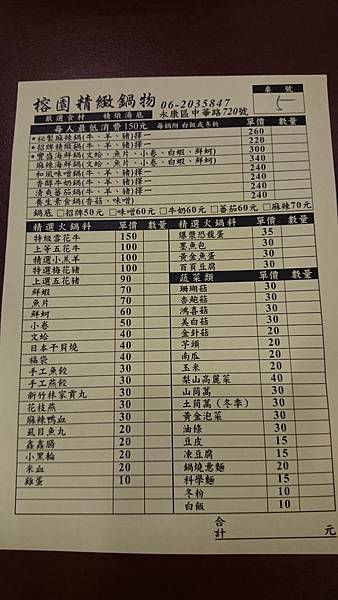 榕園精緻鍋物 06-2035847
嚴選食材 精緻湯底 永康區中華路720號
桌號
5
每人最低消費150元 每鍋附 白飯或冬粉 單價 數量
*秘製麻辣鍋(牛、羊、豬)擇一 260
*招牌精緻鍋(牛、羊、豬)擇一 220
*豐盛海鮮鍋(文蛤、魚片、小卷、白蝦、鮮蚵) 300
麻辣海鮮鍋(文蛤、魚片、小卷、白蝦、鮮蚵) 340
和風味噌鍋(牛、羊、豬)擇一 240
香醇牛奶鍋(牛、羊、豬)擇一 240
清爽蕃茄鍋(牛、羊、豬)擇一 240
養生素食鍋(香菇、味噌) 240
鍋底 □招牌50元 □味噌60元 □牛奶60元 □蕃茄60元 □麻辣70元
精選火鍋料 單價 數量
特級雪花牛 150
上等五花牛 100
精選小羔羊 100
特選梅花豬 100
上選五花豬 90
鮮蝦 70
魚片 70
鮮蚵 60
小卷 50
文蛤 40
日本干貝燒 40
福袋 40
手工魚餃 30
手工燕餃 30
新竹林家貢丸 30
花枝燕 30
麻辣鴨血 30
虱目魚丸 20
鑫鑫腸 20
小黑輪 20
米血 20
雞蛋 10
精選火鍋料 單價 數量
爆漿恐龍蛋 35
墨魚包 30
黃金魚蛋 30
百頁豆腐 30
蔬菜類 單價 數量
珊瑚菇 30
杏鮑菇 30
鴻喜菇 30
美白菇 30
金針菇 30
芋頭 30
南瓜 30
玉米 20
梨山高麗菜 40
山茼蒿 30
土茼蒿(冬季) 30
黃金泡菜 30
油條 30
豆皮 15
凍豆腐 15
鍋燒意麵 20
科學麵 15
冬粉 10
白飯 10
合計 元